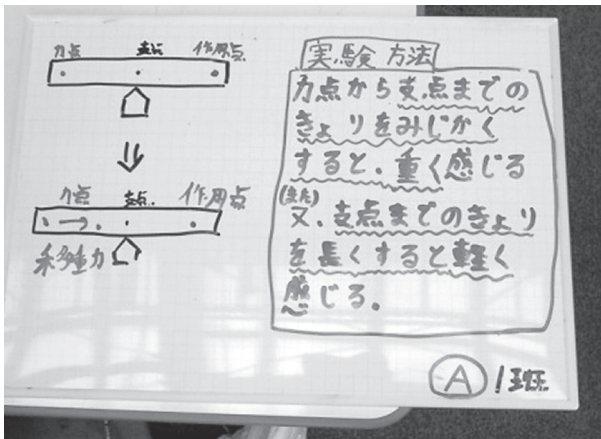 力点 支点 作用点
力点 支点 作用点
移動
実験方法
力点から支点までの
きょりをみじかく
すると、重く感じる
(また)
又、支点までのきょり
を長くすると軽く
感じる。
A 1班